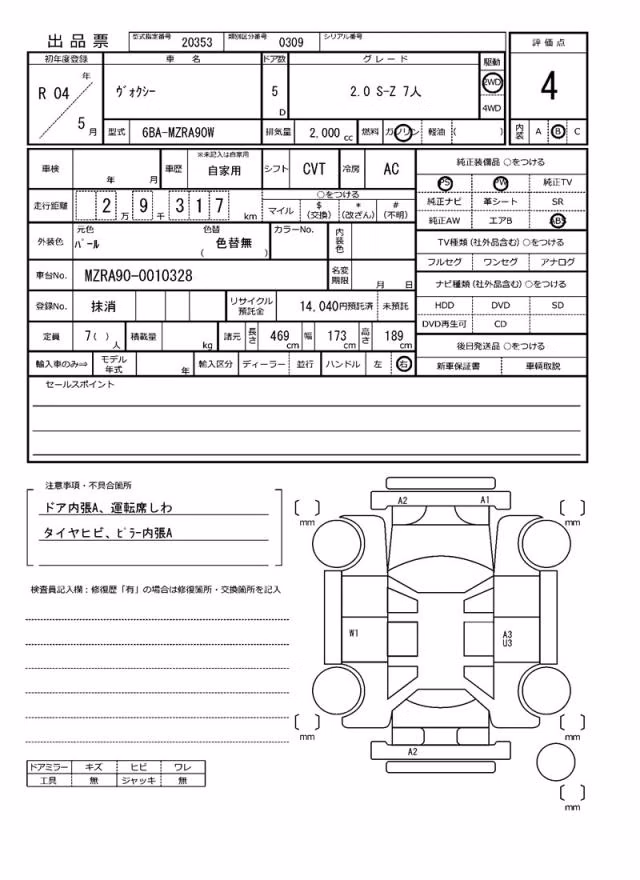 出品票 型式指定番号 20353 類別区分番号 0309 シリアル番号
評価点
4
内装 A B C
初年度登録 車名 ドア数 グレード 駆動
R 04 年 5 月 ヴォクシー 5 D 2.0 S-Z 7人 2WD 4WD
型式 6BA-MZRA90W 排気量 2,000 cc 燃料 ガソリン 軽油 ( )
車検 年 月 車歴 ※未記入は自家用 自家用 シフト CVT 冷房 AC
走行距離 2 万 9 千 3 1 7 km ○をつける
マイル $(交換) *(改ざん) #(不明)
外装色 元色 パール 色替 色替無 ( ) カラーNo. 内装色
車台No. MZRA90-0010328 名変期限 月 日
登録No. 抹消 リサイクル預託金 14,040円預託済 未預託
定員 7( ) 人 積載量 kg 諸元 長さ 469 cm 幅 173 cm 高さ 189 cm
輸入車のみ⇒ モデル年式 年 輸入区分 ディーラー 並行 ハンドル 左 右
純正装備品 ○をつける
PS PW 純正TV
純正ナビ 革シート SR
純正AW エアB ABS
TV種類(社外品含む)○をつける
フルセグ ワンセグ アナログ
ナビ種類(社外品含む)○をつける
HDD DVD SD
DVD再生可 CD
後日発送品 ○をつける
新車保証書 車輌取説
セールスポイント
注意事項・不具合箇所
ドア内張A、運転席しわ
タイヤヒビ、ピラー内張A
検査員記入欄:修復歴「有」の場合は修復箇所・交換箇所を記入
ドアミラー キズ ヒビ ワレ
工具 無 ジャッキ 無
A2 A1
mm mm
W1 A3
U3
mm mm
A2
mm